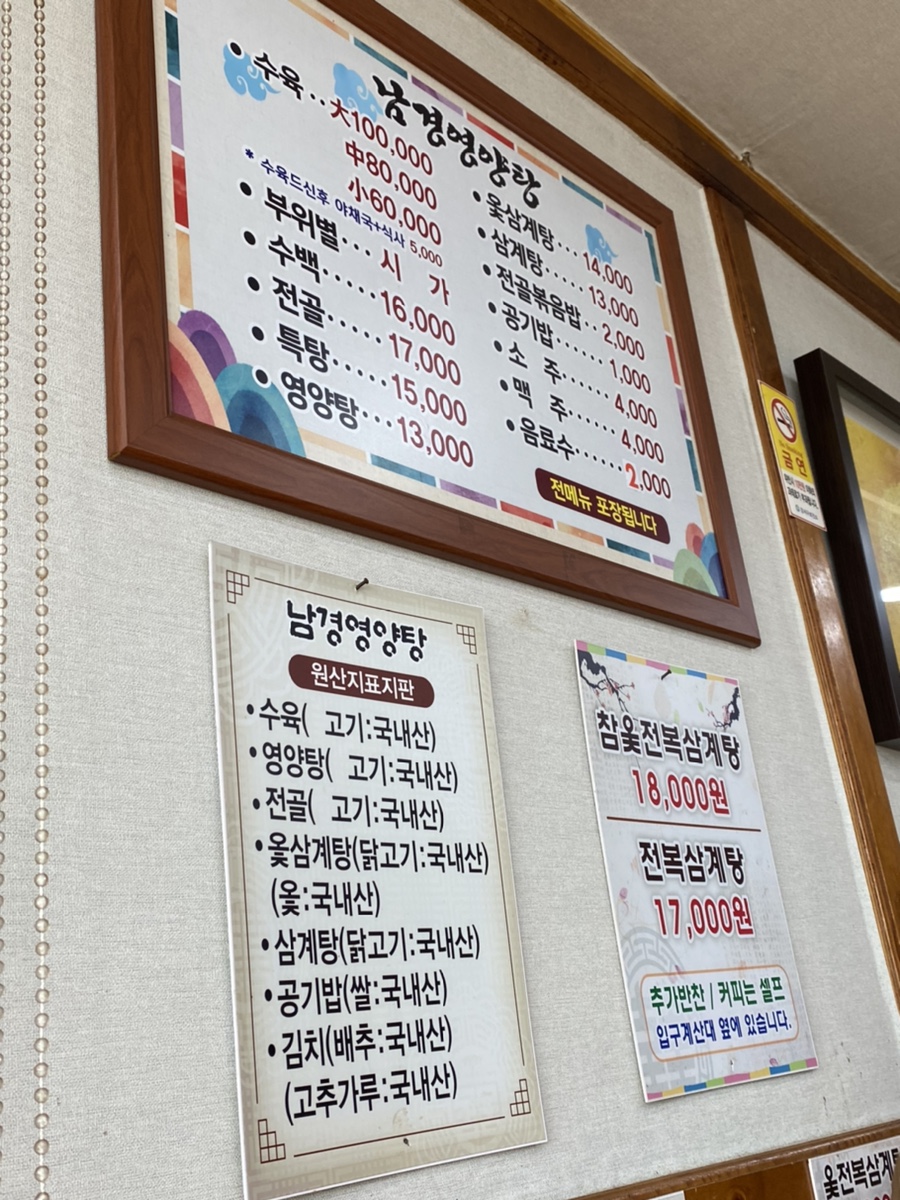 남경영양탕
• 수육 ‥ 大100,000
中80,000
小60,000
* 수육드신후 야채국+식사 5,000
• 부위별 ··· 시 가
• 수백 ····· 16,000
• 전골 ······ 17,000
• 특탕 ····· 15,000
• 영양탕 ··· 13,000
• 옻삼계탕 ··· 14,000
• 삼계탕 ····· 13,000
• 전골볶음밥 ·· 2,000
• 공기밥 ······ 1,000
• 소 주 ······ 4,000
• 맥 주 ······ 4,000
• 음료수 ······ 2,000
전메뉴 포장됩니다
금연
남경영양탕
원산지표지판
• 수육( 고기:국내산)
• 영양탕( 고기:국내산)
• 전골( 고기:국내산)
• 옻삼계탕(닭고기:국내산)
(옻:국내산)
• 삼계탕(닭고기:국내산)
• 공기밥(쌀:국내산)
• 김치(배추:국내산)
(고추가루:국내산)
참옻전복삼계탕
18,000원
전복삼계탕
17,000원
추가반찬 / 커피는 셀프
입구계산대 옆에 있습니다.
옻전복삼계탕